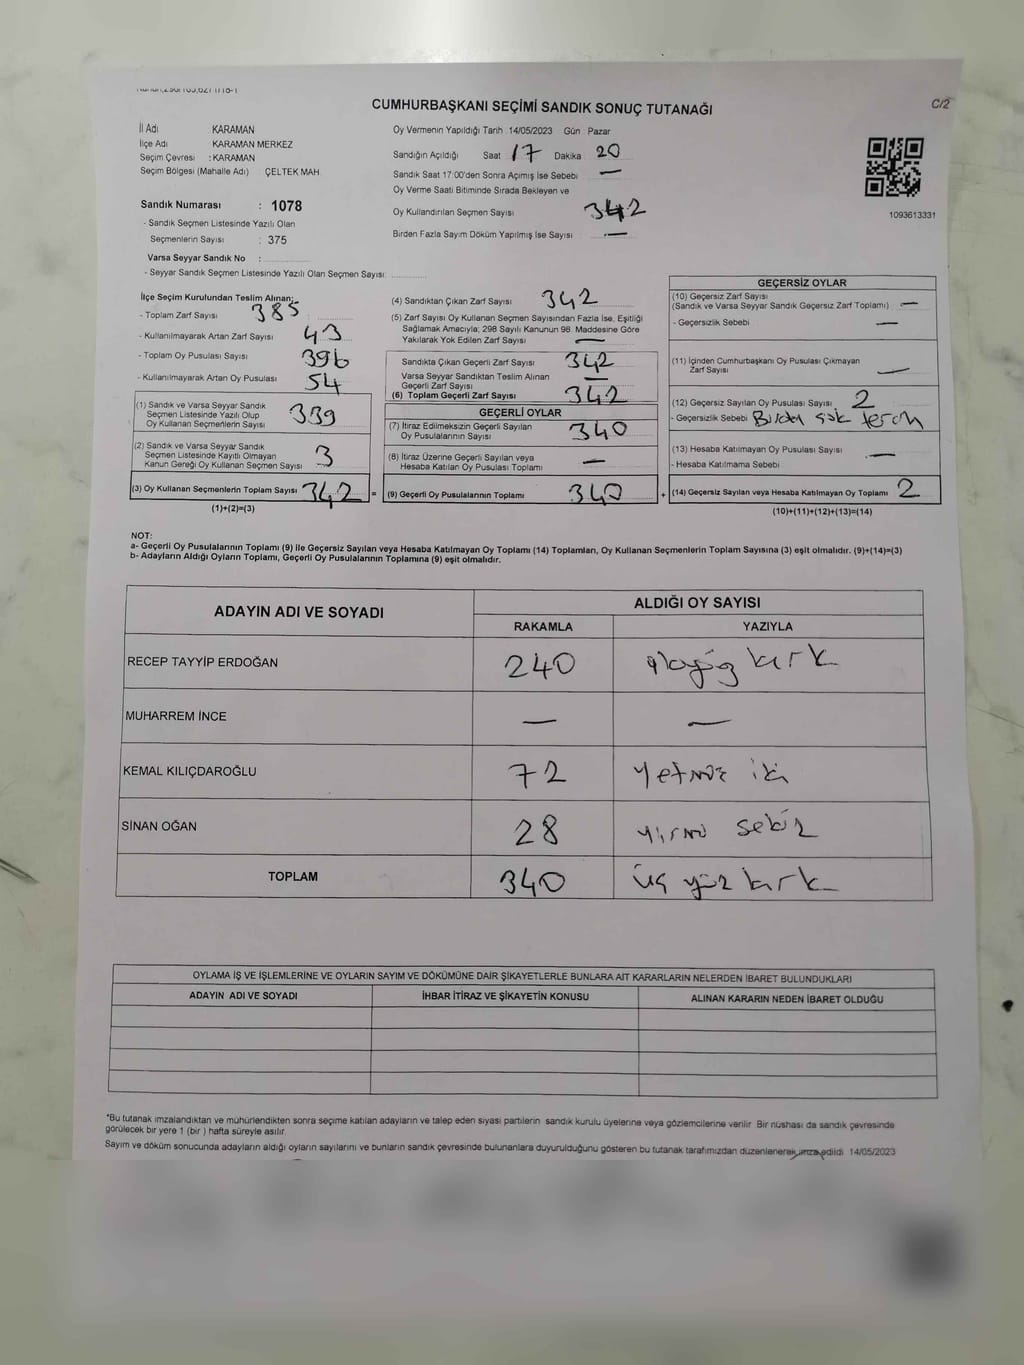 CUMHURBAŞKANI SEÇİMİ SANDIK SONUÇ TUTANAĞI
C/2
İl Adı KARAMAN
İlçe Adı KARAMAN MERKEZ
Seçim Çevresi : KARAMAN
Seçim Bölgesi (Mahalle Adı) ÇELTEK MAH.
Sandık Numarası : 1078
- Sandık Seçmen Listesinde Yazılı Olan
Seçmenlerin Sayısı : 375
Varsa Seyyar Sandık No :
- Seyyar Sandık Seçmen Listesinde Yazılı Olan Seçmen Sayısı:
Oy Vermenin Yapıldığı Tarih 14/05/2023 Gün : Pazar
Sandığın Açıldığı Saat 17 Dakika 20
Sandık Saat 17:00'den Sonra Açımış İse Sebebi —
Oy Verme Saati Bitiminde Sırada Bekleyen ve
Oy Kullandırılan Seçmen Sayısı 342
Birden Fazla Sayım Döküm Yapılmış İse Sayısı —
1093613331
İlçe Seçim Kurulundan Teslim Alınan;
- Toplam Zarf Sayısı : 385
- Kullanılmayarak Artan Zarf Sayısı : 43
- Toplam Oy Pusulası Sayısı : 396
- Kullanılmayarak Artan Oy Pusulası : 54
(1) Sandık ve Varsa Seyyar Sandık
Seçmen Listesinde Yazılı Olup
Oy Kullanan Seçmenlerin Sayısı 339
(2) Sandık ve Varsa Seyyar Sandık
Seçmen Listesinde Kayıtlı Olmayan
Kanun Gereği Oy Kullanan Seçmen Sayısı 3
(3) Oy Kullanan Seçmenlerin Toplam Sayısı 342 =
(1)+(2)=(3)
(4) Sandıktan Çıkan Zarf Sayısı 342
(5) Zarf Sayısı Oy Kullanan Seçmen Sayısından Fazla İse, Eşitliği
Sağlamak Amacıyla; 298 Sayılı Kanunun 98. Maddesine Göre
Yakılarak Yok Edilen Zarf Sayısı —
Sandıkta Çıkan Geçerli Zarf Sayısı 342
Varsa Seyyar Sandıktan Teslim Alınan
Geçerli Zarf Sayısı —
(6) Toplam Geçerli Zarf Sayısı 342
GEÇERLİ OYLAR
(7) İtiraz Edilmeksizin Geçerli Sayılan
Oy Pusulalarının Sayısı 340
(8) İtiraz Üzerine Geçerli Sayılan veya
Hesaba Katılan Oy Pusulası Toplamı —
(9) Geçerli Oy Pusulalarının Toplamı 340 +
GEÇERSİZ OYLAR
(10) Geçersiz Zarf Sayısı
(Sandık ve Varsa Seyyar Sandık Geçersiz Zarf Toplamı) —
- Geçersizlik Sebebi —
(11) İçinden Cumhurbaşkanı Oy Pusulası Çıkmayan
Zarf Sayısı —
(12) Geçersiz Sayılan Oy Pusulası Sayısı 2
- Geçersizlik Sebebi
(13) Hesaba Katılmayan Oy Pusulası Sayısı —
- Hesaba Katılmama Sebebi
(14) Geçersiz Sayılan veya Hesaba Katılmayan Oy Toplamı 2
(10)+(11)+(12)+(13)=(14)
NOT:
a- Geçerli Oy Pusulalarının Toplamı (9) ile Geçersiz Sayılan veya Hesaba Katılmayan Oy Toplamı (14) Toplamları, Oy Kullanan Seçmenlerin Toplam Sayısına (3) eşit olmalıdır. (9)+(14)=(3)
b- Adayların Aldığı Oyların Toplamı, Geçerli Oy Pusulalarının Toplamına (9) eşit olmalıdır.
ADAYIN ADI VE SOYADI ALDIĞI OY SAYISI
RAKAMLA YAZIYLA
RECEP TAYYİP ERDOĞAN 240 kırk
MUHARREM İNCE — —
KEMAL KILIÇDAROĞLU 72 yetmiş iki
SİNAN OĞAN 28 yirmi sekiz
TOPLAM 340 üç yüz kırk
OYLAMA İŞ VE İŞLEMLERİNE VE OYLARIN SAYIM VE DÖKÜMÜNE DAİR ŞİKAYETLERLE BUNLARA AİT KARARLARIN NELERDEN İBARET BULUNDUKLARI
ADAYIN ADI VE SOYADI İHBAR İTİRAZ VE ŞİKAYETİN KONUSU ALINAN KARARIN NEDEN İBARET OLDUĞU
*Bu tutanak imzalandıktan ve mühürlendikten sonra seçime katılan adayların ve talep eden siyasi partilerin sandık kurulu üyelerine veya gözlemcilerine verilir. Bir nüshası da sandık çevresinde
görülecek bir yere 1 (bir ) hafta süreyle asılır.
Sayım ve döküm sonucunda adayların aldığı oyların sayılarını ve bunların sandık çevresinde bulunanlara duyurulduğunu gösteren bu tutanak tarafımızdan düzenlenerek imza edildi 14/05/2023